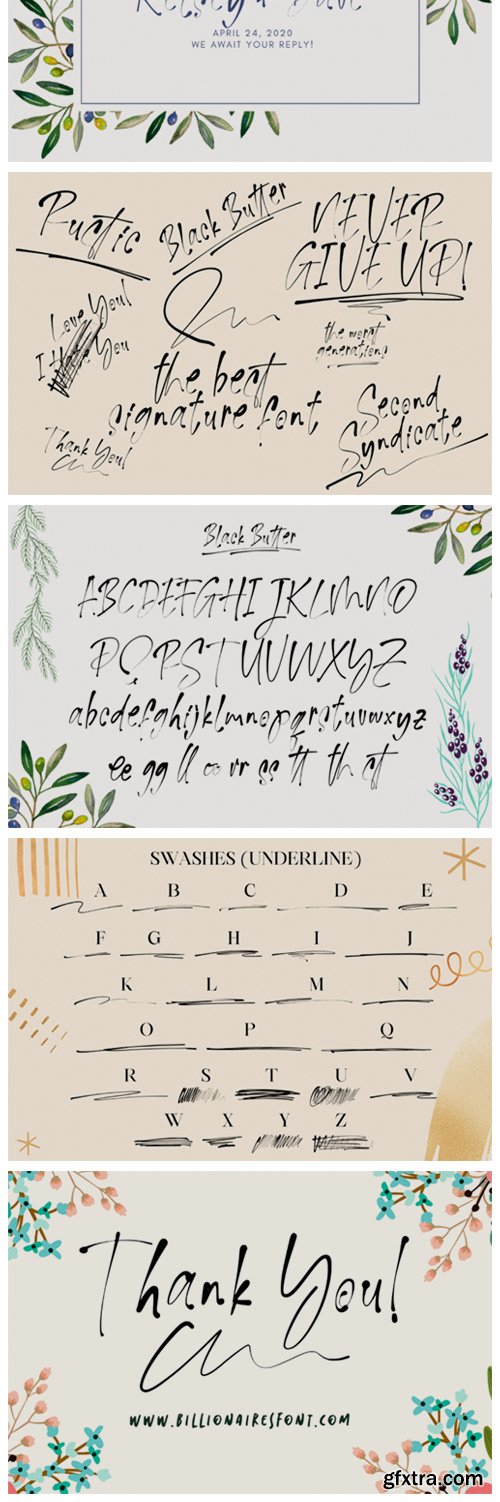 Kelsey & Dave
APRIL 24, 2020
WE AWAIT YOUR REPLY!
Rustic
Black Butter
NEVER
GIVE UP!
Love You!
I Hate You
the worst
generations
the best
signature font
Thank You!
Second
Syndicate
Black Butter
ABCDEFGHIJKLMNO
PQRSTUVWXYZ
abcdefghijklmnopqrstuvwxyz
ee gg ll oo rr ss tt th st
SWASHES (UNDERLINE)
A B C D E
F G H I J
K L M N
O P Q
R S T U V
W X Y Z
Thank You!
WWW.BILLIONAIRESFONT.COM
gfxtra.com